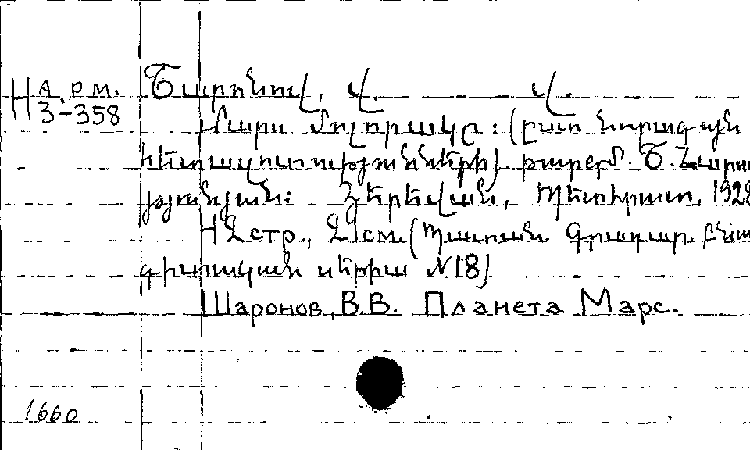 Н А р м. Շարոնով, Վ. Վ.
3-358
Մարս մոլորակը: (ըստ նորագույն
հետազոտությունների). թարգմ. Տ. Հարու
թյունյան: Յերեվան, Պետհրատ, 1928
42 стр., см. (Պատան. Գրադար. բնա
գիտական սերիա №18)
Шаронов, В.В. Планета Марс.
1660